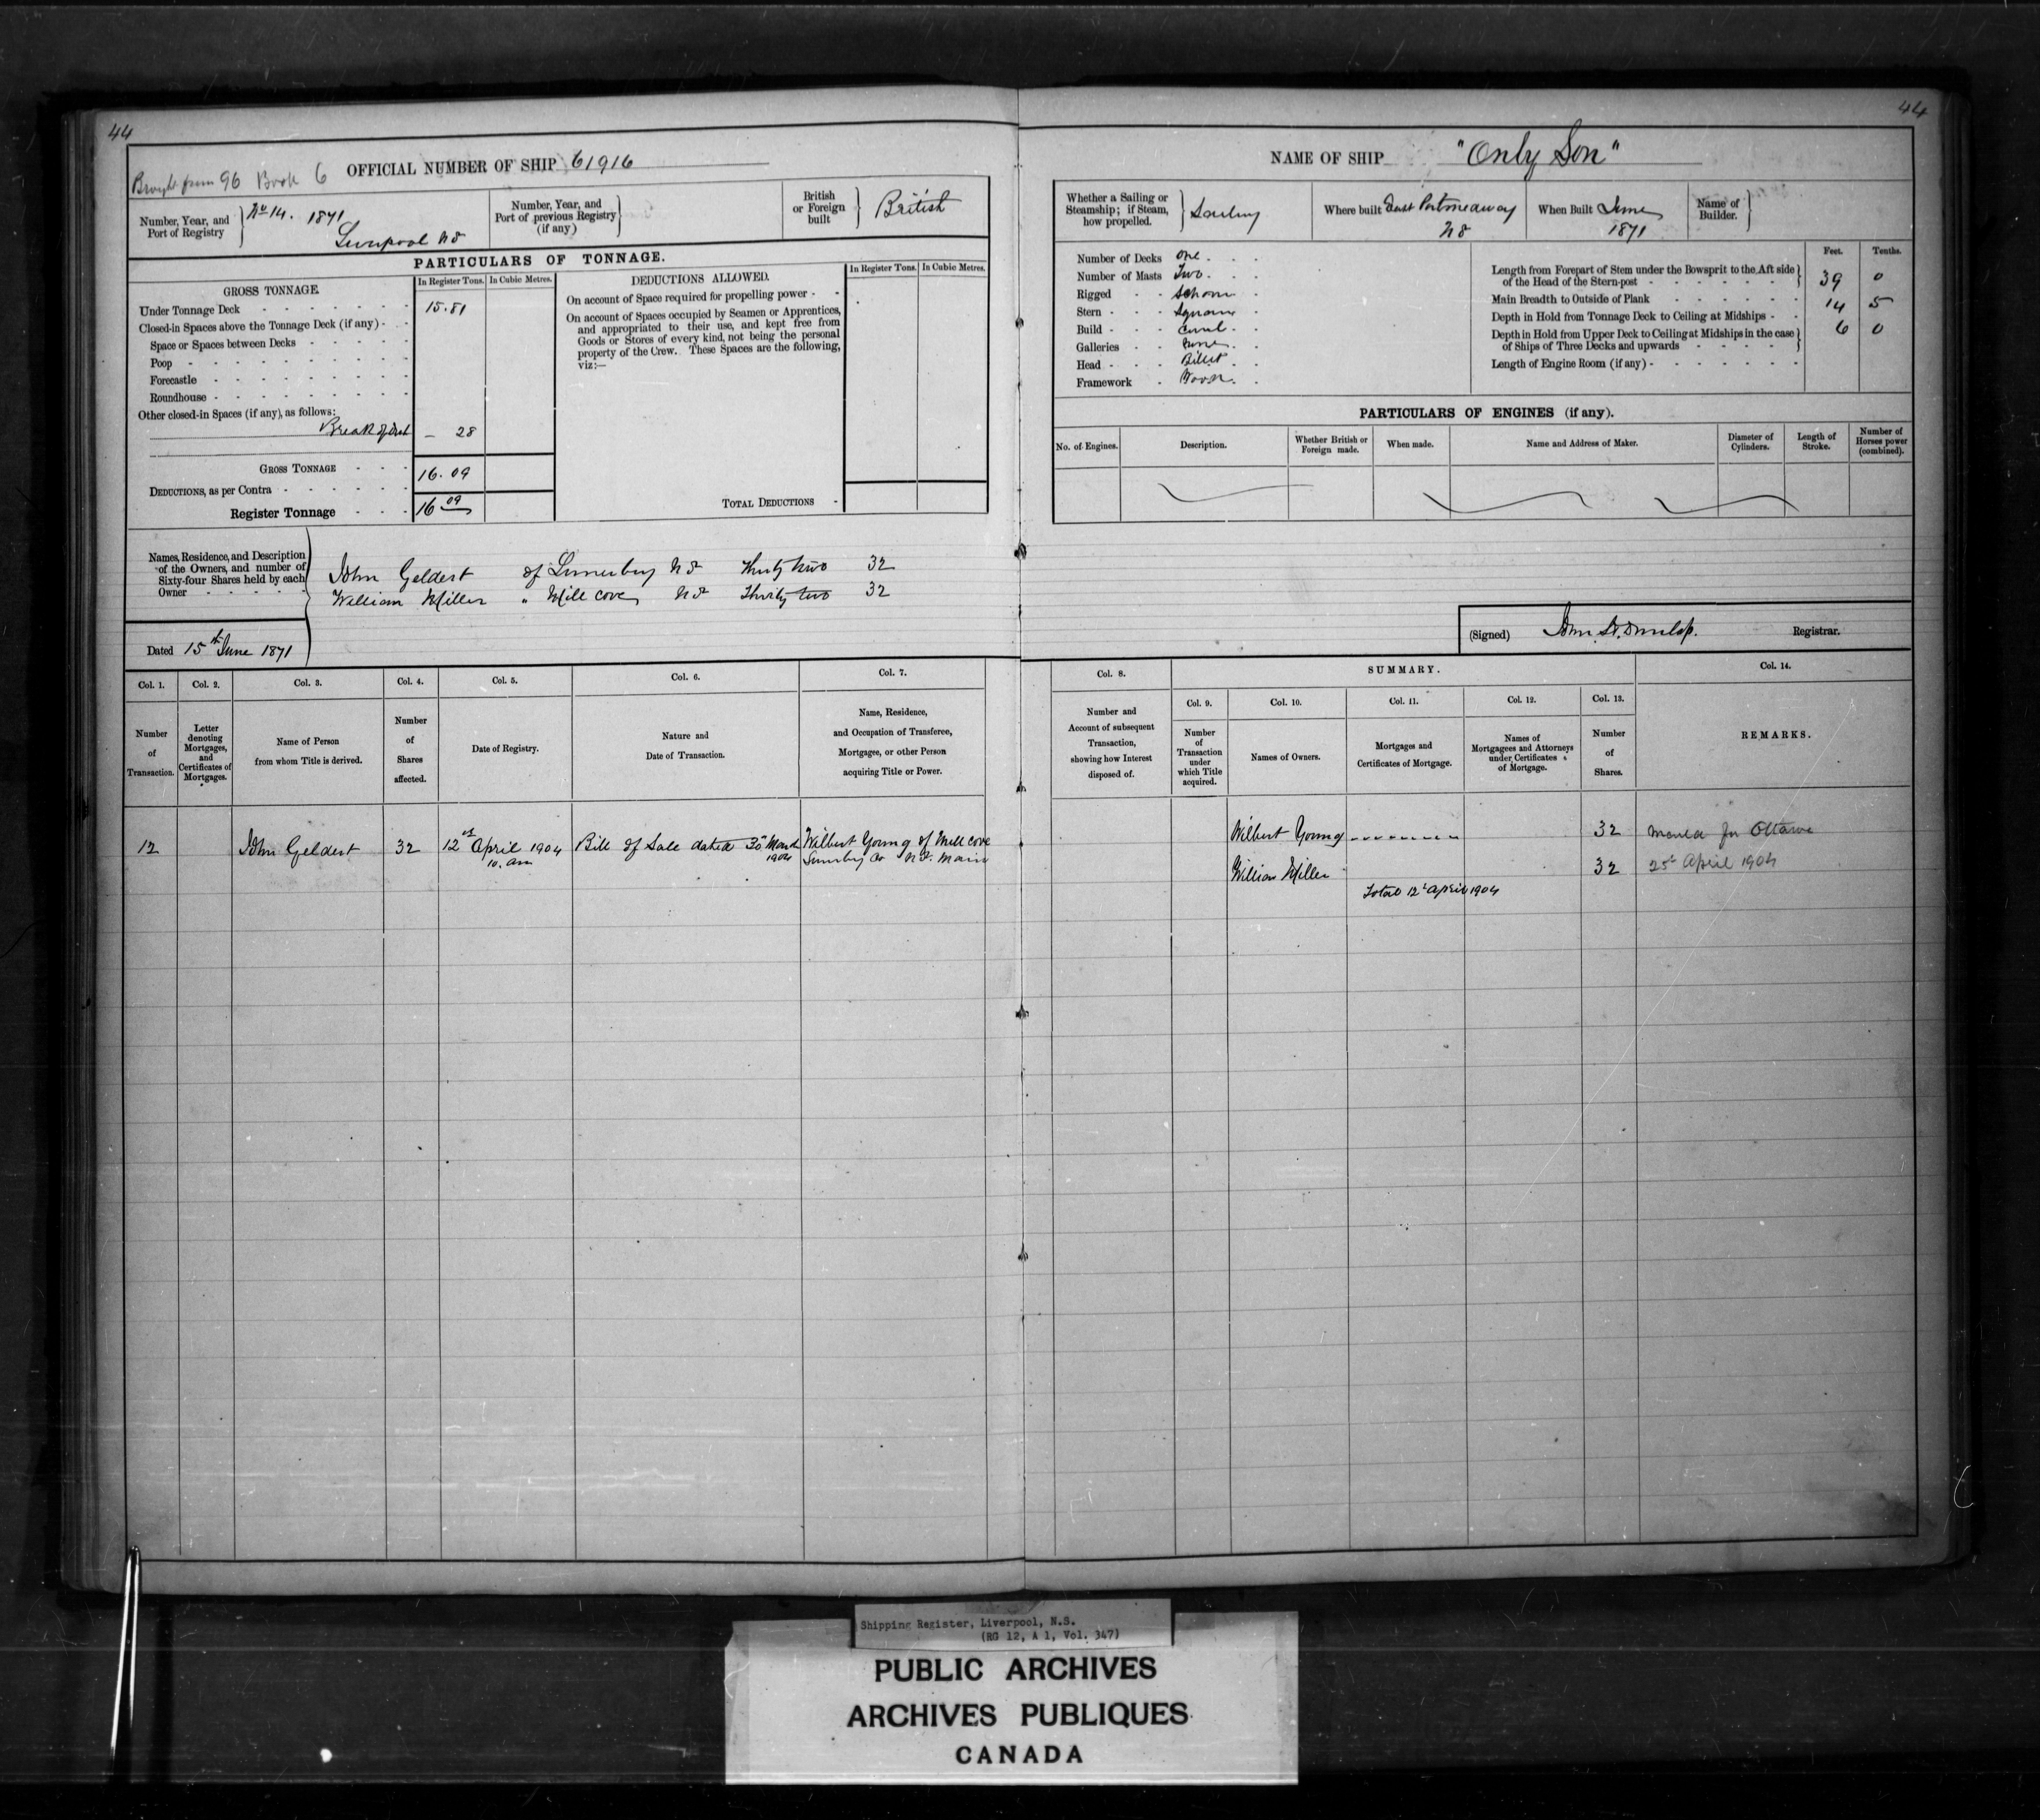 44
Brought from 96 Book 6
OFFICIAL NUMBER OF SHIP 61916
Number, Year, and Port of Registry
No 14. 1871
Liverpool NS
Number, Year, and Port of previous Registry (if any)
British or Foreign built
British
PARTICULARS OF TONNAGE.
GROSS TONNAGE.
In Register Tons.
In Cubic Metres.
Under Tonnage Deck 15.81
Closed-in Spaces above the Tonnage Deck (if any)
Space or Spaces between Decks
Poop
Forecastle
Roundhouse
Other closed-in Spaces (if any), as follows:
Break of Deck — 28
GROSS TONNAGE 16.09
DEDUCTIONS, as per Contra
Register Tonnage 16 09
DEDUCTIONS ALLOWED.
In Register Tons.
In Cubic Metres.
On account of Space required for propelling power
On account of Spaces occupied by Seamen or Apprentices,
and appropriated to their use, and kept free from
Goods or Stores of every kind, not being the personal
property of the Crew. These Spaces are the following,
viz:—
TOTAL DEDUCTIONS
Names, Residence, and Description
of the Owners, and number of
Sixty-four Shares held by each
Owner
John Geldert of Lunenburg NS Thirty two 32
William Miller " Mill cove NS Thirty two 32
Dated 15th June 1871
Col. 1.
Col. 2.
Col. 3.
Col. 4.
Col. 5.
Col. 6.
Col. 7.
Number of Transaction.
Letter denoting Mortgages, and Certificates of Mortgages.
Name of Person from whom Title is derived.
Number of Shares affected.
Date of Registry.
Nature and Date of Transaction.
Name, Residence, and Occupation of Transferee, Mortgagee, or other Person acquiring Title or Power.
12 John Geldert 32 12th April 1904 Bill of Sale dated 30th March Wilbert Young of Mill cove
10. am 1904
44
NAME OF SHIP "Only Son"
Whether a Sailing or Steamship; if Steam, how propelled.
Sailing
Where built East Portmedway
NS
When Built June
1871
Name of Builder.
Number of Decks One
Number of Masts Two
Rigged Schooner
Stern Square
Build Carvel
Galleries None
Head Billet
Framework Wood
Feet. Tenths.
Length from Forepart of Stem under the Bowsprit to the Aft side
of the Head of the Stern-post 39 0
Main Breadth to Outside of Plank 14 5
Depth in Hold from Tonnage Deck to Ceiling at Midships 6 0
Depth in Hold from Upper Deck to Ceiling at Midships in the case
of Ships of Three Decks and upwards
Length of Engine Room (if any)
PARTICULARS OF ENGINES (if any).
No. of Engines.
Description.
Whether British or Foreign made.
When made.
Name and Address of Maker.
Diameter of Cylinders.
Length of Stroke.
Number of Horses power (combined).
(Signed) Registrar.
Col. 8.
SUMMARY.
Col. 14.
Col. 9.
Col. 10.
Col. 11.
Col. 12.
Col. 13.
Number and Account of subsequent Transaction, showing how Interest disposed of.
Number of Transaction under which Title acquired.
Names of Owners.
Mortgages and Certificates of Mortgage.
Names of Mortgagees and Attorneys under Certificates of Mortgage.
Number of Shares.
REMARKS.
Wilbert Young 32 for Ottawa
William Miller 32 25th April 1904
Total 12th April 1904
Shipping Register, Liverpool, N.S.
(RG 12, A 1, Vol. 347)
PUBLIC ARCHIVES
ARCHIVES PUBLIQUES
CANADA